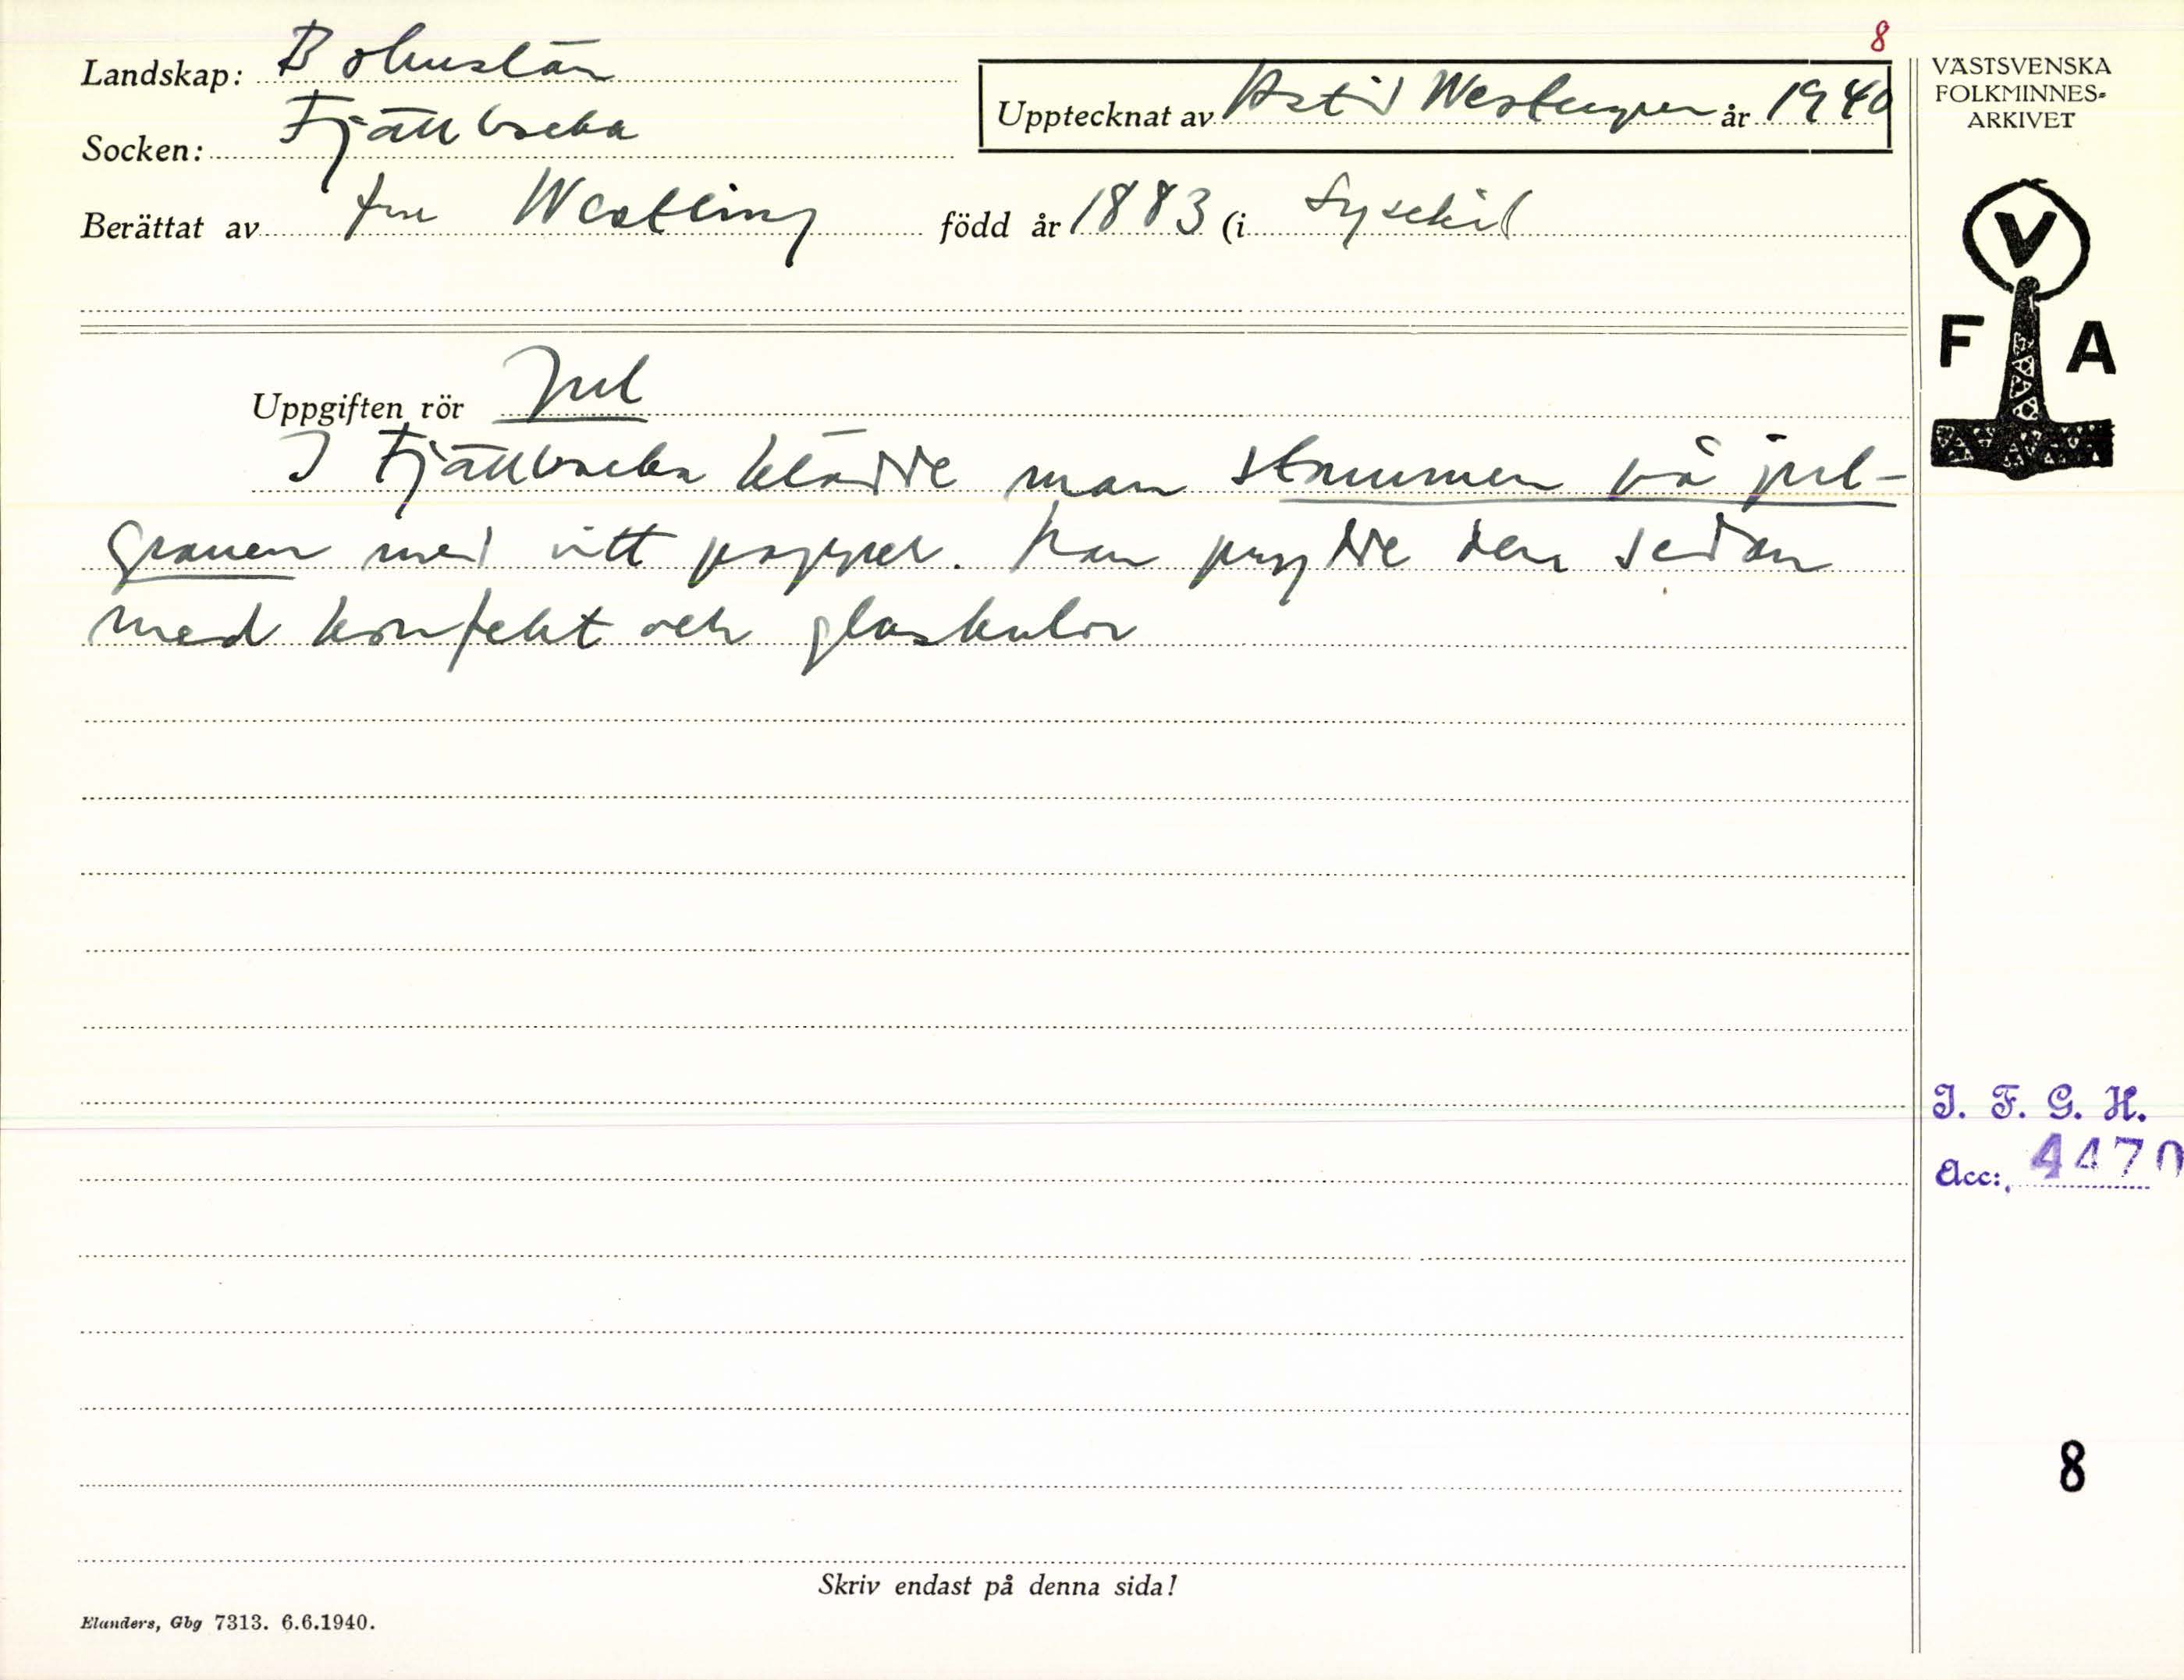 8
Landskap: Bohuslän
Socken: Fjällbacka
Upptecknat av Astrid år 1940
Berättat av fru Westling född år 1883 (i Lysekil
VÄSTSVENSKA
FOLKMINNES-
ARKIVET
V
F A
Uppgiften rör Jul
I Fjällbacka klädde man stammen på jul-
granen med vitt papper. Man prydde den sedan
med konfekt och glaskulor
I. F. G. H.
Acc: 4470
8
Skriv endast på denna sida!
Elanders, Gbg 7313. 6.6.1940.